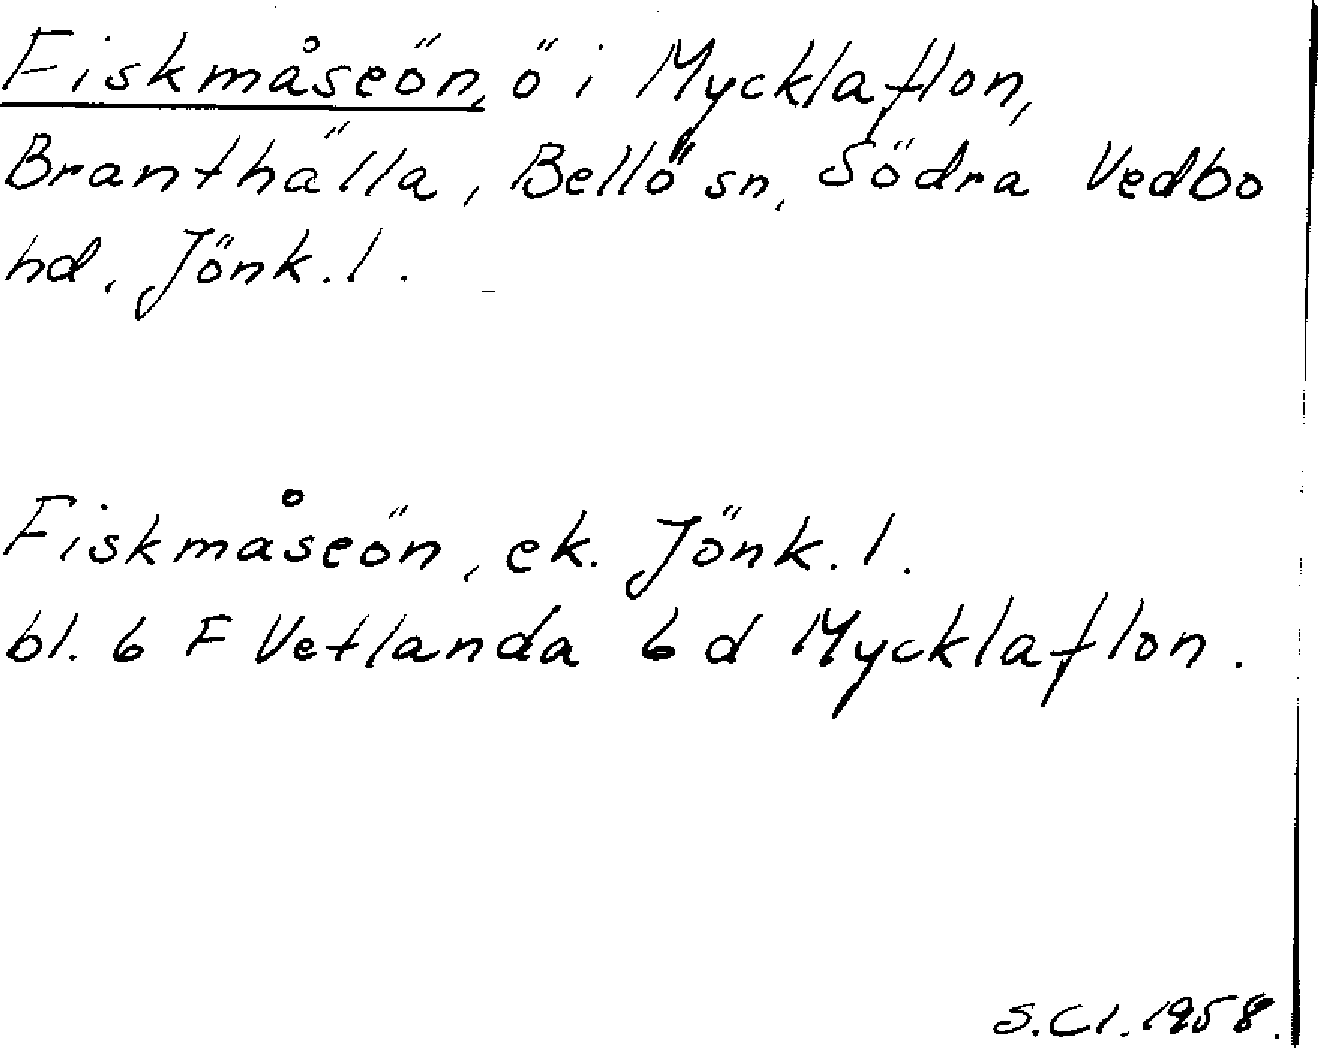 Fiskmåseön, ö i Mycklaflon,
Branthälla, Bellö sn, Södra Vedbo
hd, Jönk. l.
Fiskmåseön, ek. Jönk. l.
bl. 6 F Vetlanda 6 d Mycklaflon.
S. Cl. 1958.